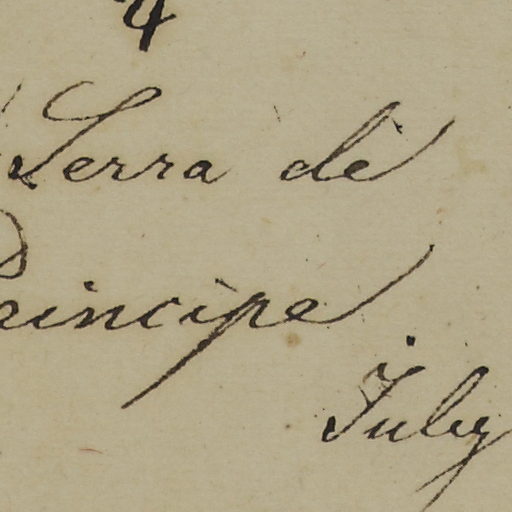 4
Serra de
Principe
July